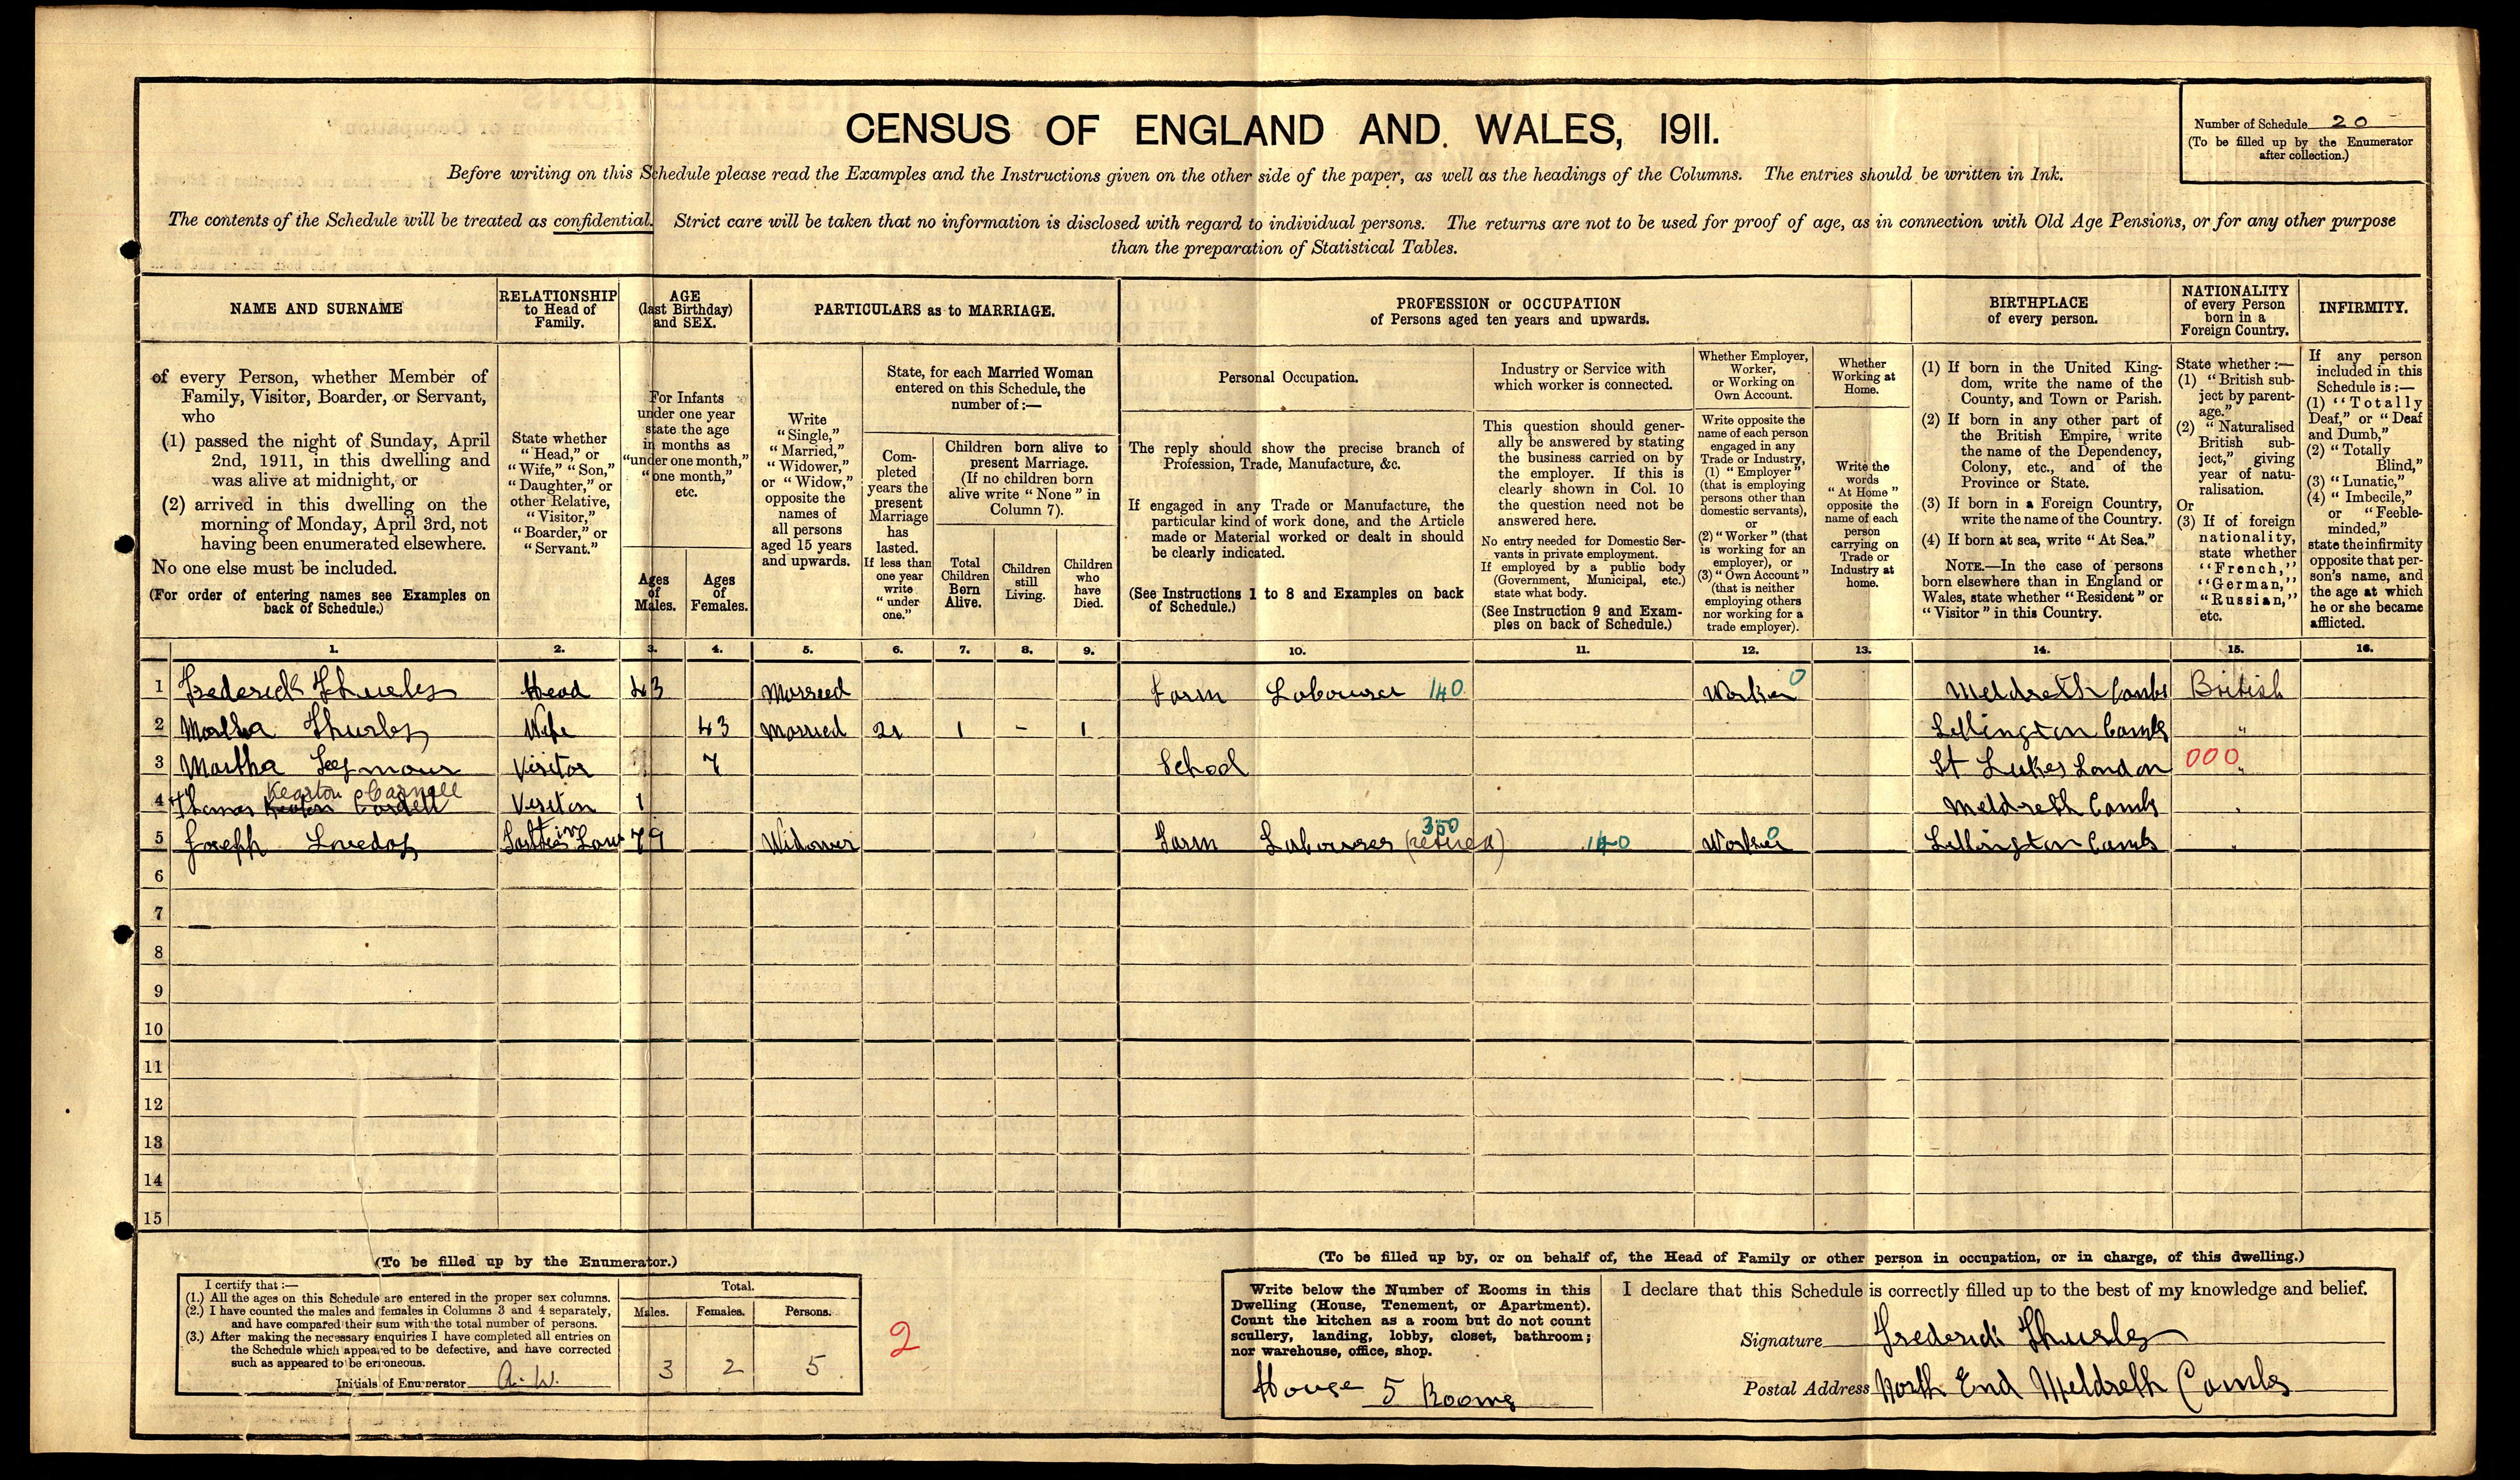 CENSUS OF ENGLAND AND WALES, 1911.
Number of Schedule 20
(To be filled up by the Enumerator
after collection.)
Before writing on this Schedule please read the Examples and the Instructions given on the other side of the paper, as well as the headings of the Columns. The entries should be written in Ink.
The contents of the Schedule will be treated as confidential. Strict care will be taken that no information is disclosed with regard to individual persons. The returns are not to be used for proof of age, as in connection with Old Age Pensions, or for any other purpose
than the preparation of Statistical Tables.
NAME AND SURNAME
of every Person, whether Member of
Family, Visitor, Boarder, or Servant,
who
(1) passed the night of Sunday, April
2nd, 1911, in this dwelling and
was alive at midnight, or
(2) arrived in this dwelling on the
morning of Monday, April 3rd, not
having been enumerated elsewhere.
No one else must be included.
(For order of entering names see Examples on
back of Schedule.)
RELATIONSHIP
to Head of
Family.
State whether
"Head," or
"Wife," "Son,"
"Daughter," or
other Relative,
"Visitor,"
"Boarder," or
"Servant."
AGE
(last Birthday)
and SEX.
For Infants
under one year
state the age
in months as
"under one month,"
"one month,"
etc.
Ages
of
Males.
Ages
of
Females.
PARTICULARS as to MARRIAGE.
Write
"Single,"
"Married,"
"Widower,"
or "Widow,"
opposite the
names of
all persons
aged 15 years
and upwards.
State, for each Married Woman
entered on this Schedule, the
number of:—
Com-
pleted
years the
present
Marriage
has
lasted.
If less than
one year
write
"under
one."
Children born alive to
present Marriage.
(If no children born
alive write "None" in
Column 7).
Total
Children
Born
Alive.
Children
still
Living.
Children
who
have
Died.
PROFESSION or OCCUPATION
of Persons aged ten years and upwards.
Personal Occupation.
The reply should show the precise branch of
Profession, Trade, Manufacture, &c.
If engaged in any Trade or Manufacture, the
particular kind of work done, and the Article
made or Material worked or dealt in should
be clearly indicated.
(See Instructions 1 to 8 and Examples on back
of Schedule.)
Industry or Service with
which worker is connected.
This question should gener-
ally be answered by stating
the business carried on by
the employer. If this is
clearly shown in Col. 10
the question need not be
answered here.
No entry needed for Domestic Ser-
vants in private employment.
If employed by a public body
(Government, Municipal, etc.)
state what body.
(See Instruction 9 and Exam-
ples on back of Schedule.)
Whether Employer,
Worker,
or Working on
Own Account.
Write opposite the
name of each person
engaged in any
Trade or Industry,
(1) "Employer"
(that is employing
persons other than
domestic servants),
or
(2) "Worker" (that
is working for an
employer), or
(3) "Own Account"
(that is neither
employing others
nor working for a
trade employer).
Whether
Working at
Home.
Write the
words
"At Home"
opposite the
name of each
person
carrying on
Trade or
Industry at
home.
BIRTHPLACE
of every person.
(1) If born in the United King-
dom, write the name of the
County, and Town or Parish.
(2) If born in any other part of
the British Empire, write
the name of the Dependency,
Colony, etc., and of the
Province or State.
(3) If born in a Foreign Country,
write the name of the Country.
(4) If born at sea, write "At Sea."
NOTE.—In the case of persons
born elsewhere than in England or
Wales, state whether "Resident" or
"Visitor" in this Country.
NATIONALITY
of every Person
born in a
Foreign Country.
State whether:—
(1) "British sub-
ject by parent-
age."
(2) "Naturalised
British sub-
ject," giving
year of natu-
ralisation.
Or
(3) If of foreign
nationality,
state whether
"French,"
"German,"
"Russian,"
etc.
INFIRMITY.
If any person
included in this
Schedule is:—
(1) "Totally
Deaf," or "Deaf
and Dumb,"
(2) "Totally
Blind,"
(3) "Lunatic,"
(4) "Imbecile,"
or "Feeble-
minded,"
state the infirmity
opposite that per-
son's name, and
the age at which
he or she became
afflicted.
1. 2. 3. 4. 5. 6. 7. 8. 9. 10. 11. 12. 13. 14. 15. 16.
1 Frederick Thurley Head 43 Married Farm Labourer 140 Worker 0 Meldreth Cambs British
2 Martha Thurley Wife 43 Married 21 1 – 1 Litlington Cambs "
3 Martha Seymour Visitor 7 School St Lukes London 000 "
Kearton Carnell
4 Thomas Visitor 1 Meldreth Cambs "
5 Joseph Loveday Father in Law 79 Widower Farm Labourer (retired) 350 140 Worker 0 Litlington Cambs "
6
7
8
9
10
11
12
13
14
15
(To be filled up by the Enumerator.)
I certify that:—
(1.) All the ages on this Schedule are entered in the proper sex columns.
(2.) I have counted the males and females in Columns 3 and 4 separately,
and have compared their sum with the total number of persons.
(3.) After making the necessary enquiries I have completed all entries on
the Schedule which appeared to be defective, and have corrected
such as appeared to be erroneous.
Initials of Enumerator A. W.
Total.
Males. Females. Persons.
3 2 5
2
(To be filled up by, or on behalf of, the Head of Family or other person in occupation, or in charge, of this dwelling.)
Write below the Number of Rooms in this
Dwelling (House, Tenement, or Apartment).
Count the kitchen as a room but do not count
scullery, landing, lobby, closet, bathroom;
nor warehouse, office, shop.
House 5 Rooms
I declare that this Schedule is correctly filled up to the best of my knowledge and belief.
Signature Frederick Thurley
Postal Address North End Meldreth Cambs